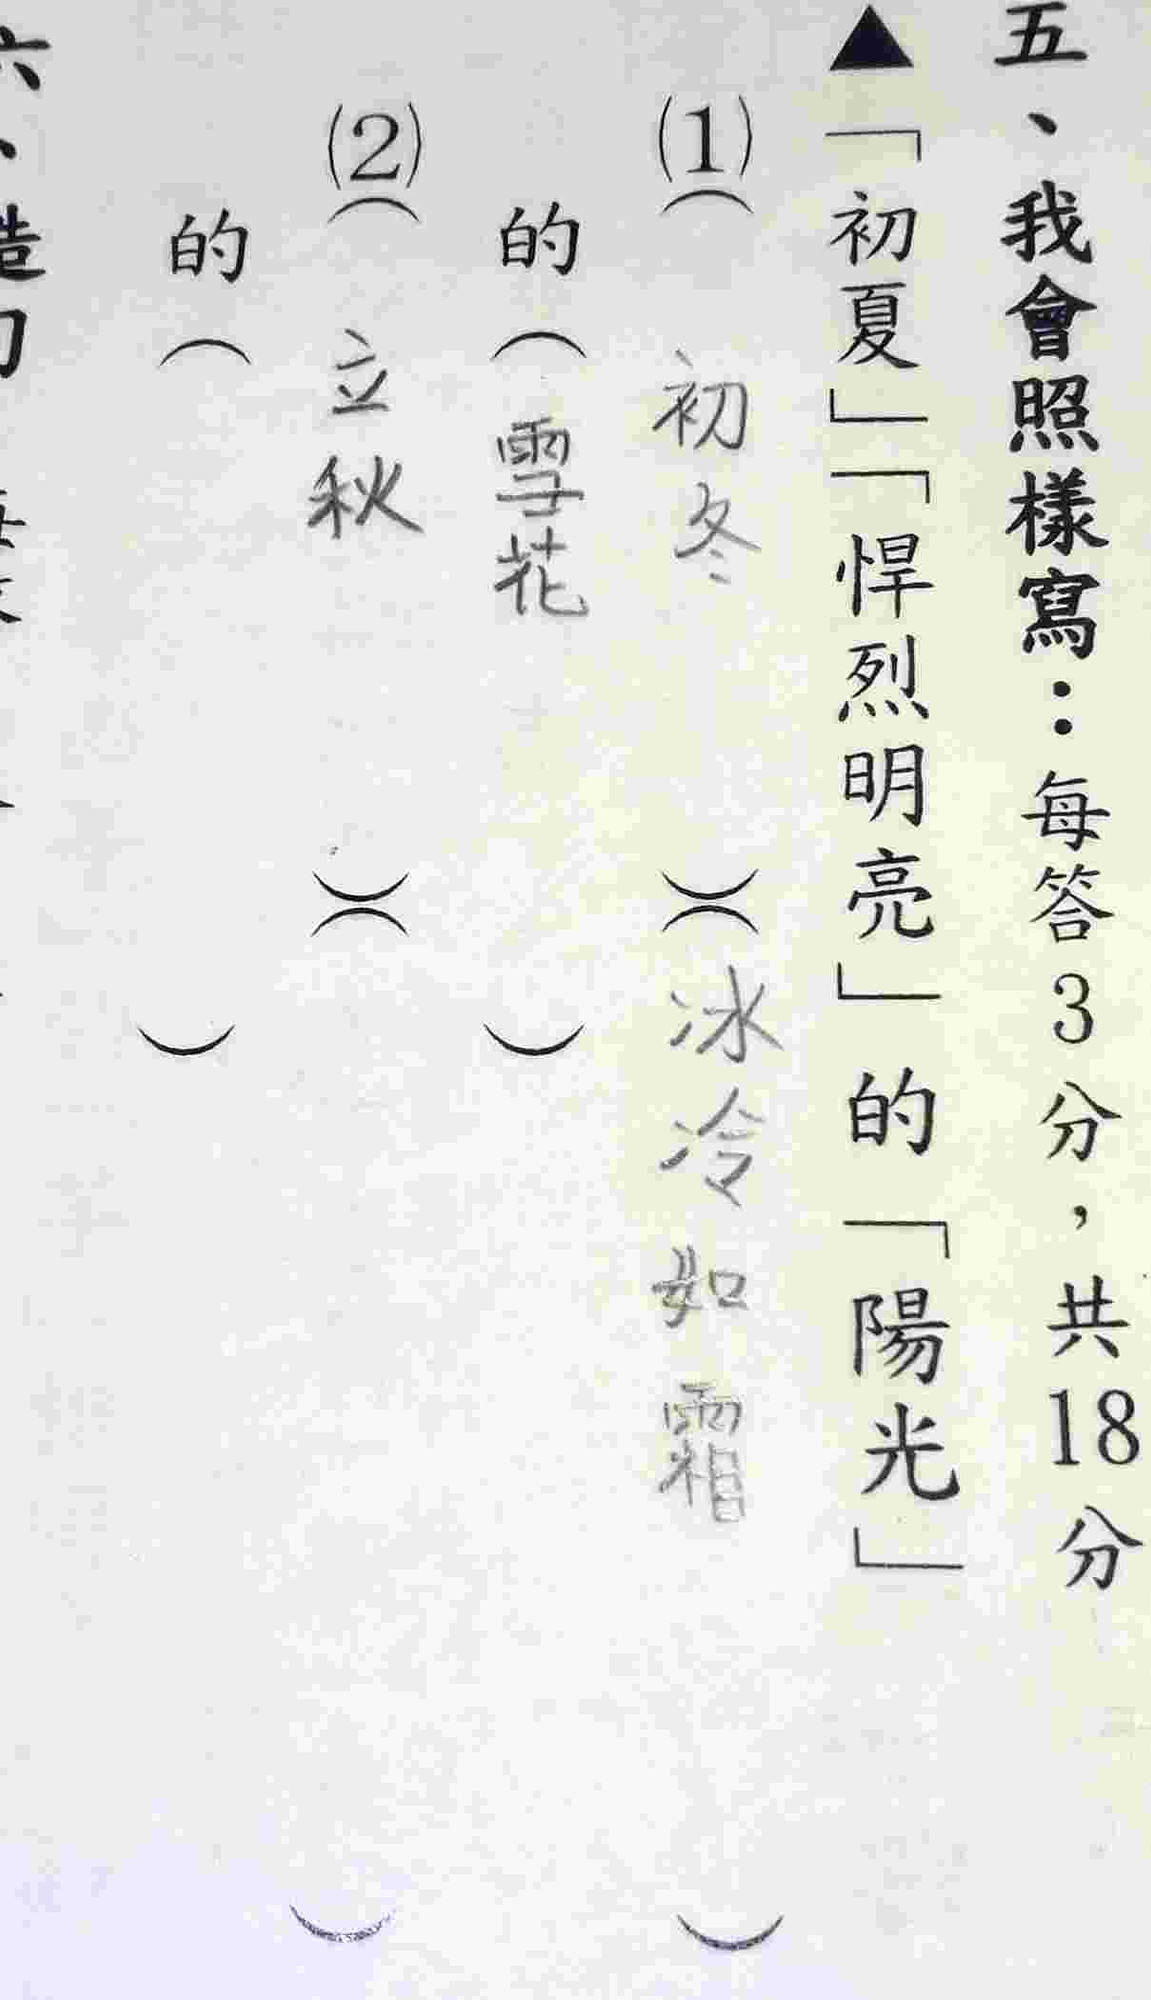 五、我會照樣寫：每答3分，共18分
▲「初夏」「悍烈明亮」的「陽光」
(1)（初冬）（冰冷如霜）
的（雪花）
(2)（立秋）（）
的（）
六、造句